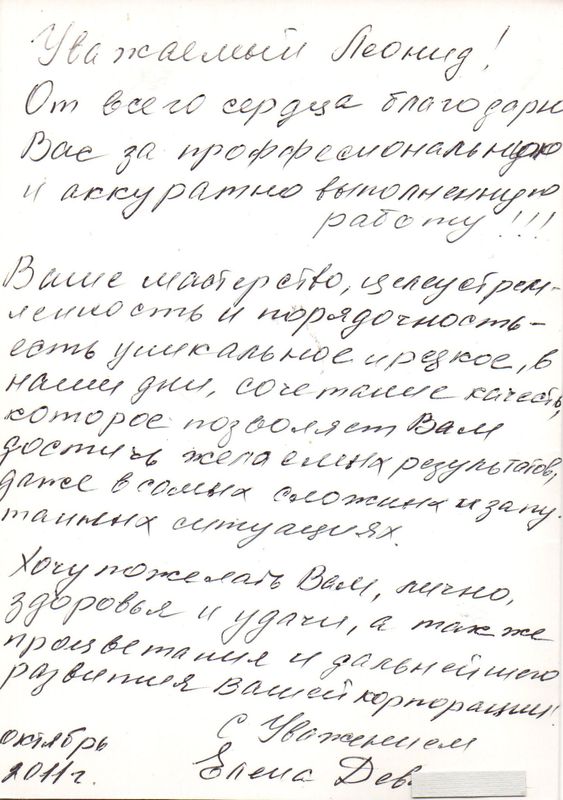 Уважаемый Леонид!
От всего сердца благодарю
Вас за проффесиональную
и аккуратно выполненную
работу!!!
Ваше мастерство, целеустрем-
ленность и порядочность -
есть уникальное и редкое, в
наши дни, сочетание качеств,
которое позволяет Вам
достичь желаемых результатов,
даже в самых сложных и запу-
танных ситуациях.
Хочу пожелать Вам, лично,
здоровья и удачи, а также
процветания и дальнейшего
развития Вашей корпорации!
С Уважением
октябрь
2011г.
Елена Дев